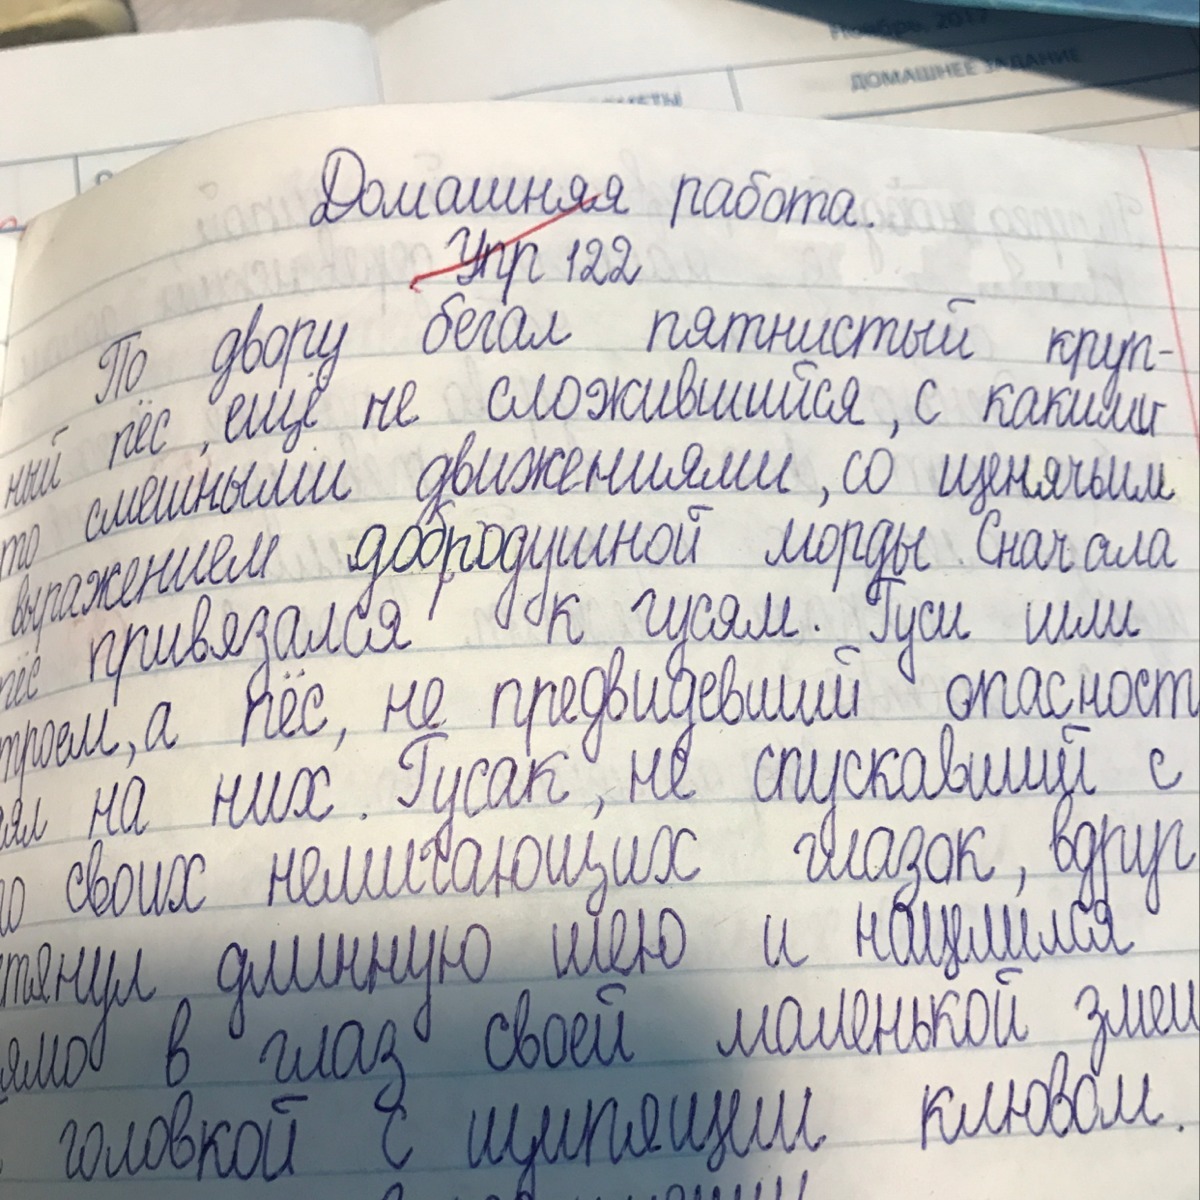 Ноябрь, 2017
ДОМАШНЕЕ ЗАДАНИЕ
Домашняя работа.
Упр 122
По двору бегал пятнистый круп-
ный пёс, ещё не сложившийся, с какими
то смешными движениями, со щенячьим
выражением добродушной морды. Сначала
пёс привязался к гусям. Гуси шли
троем, а пёс, не предвидевший опасност
аял на них. Гусак, не спускавший с
го своих немигающих глазок, вдруг
тянул длинную шею и нацелился
ямо в глаз своей маленькой змеи
головкой с шипящим клювом.